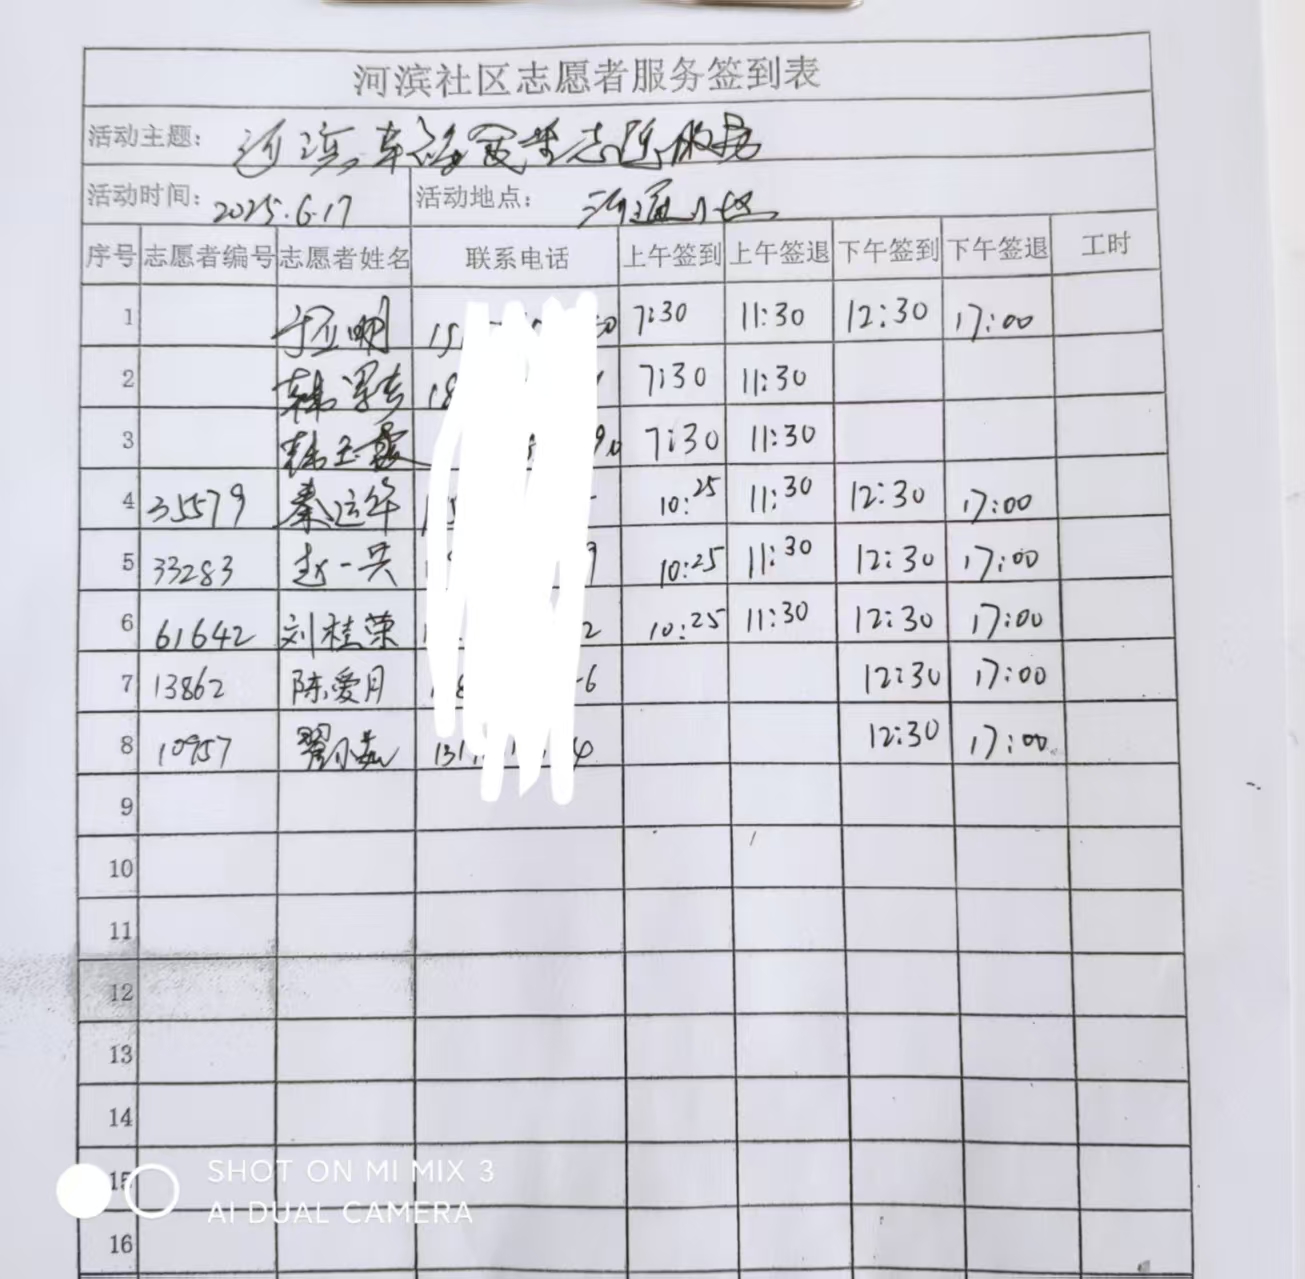 河滨社区志愿者服务签到表
活动主题： 志愿服务
活动时间： 2025.6.17 活动地点： 小区
序号 志愿者编号 志愿者姓名 联系电话 上午签到 上午签退 下午签到 下午签退 工时
1 明 15 7:30 11:30 12:30 17:00
2 韩 18 7:30 11:30
3 韩玉霞 7:30 11:30
4 35579 秦运华 10:25 11:30 12:30 17:00
5 33283 赵一兵 9 10:25 11:30 12:30 17:00
6 61642 刘桂荣 2 10:25 11:30 12:30 17:00
7 13862 陈爱月 6 12:30 17:00
8 10957 翟小 131 4 12:30 17:00
9
10
11
12
13
14
15
16
SHOT ON MI MIX 3
AI DUAL CAMERA